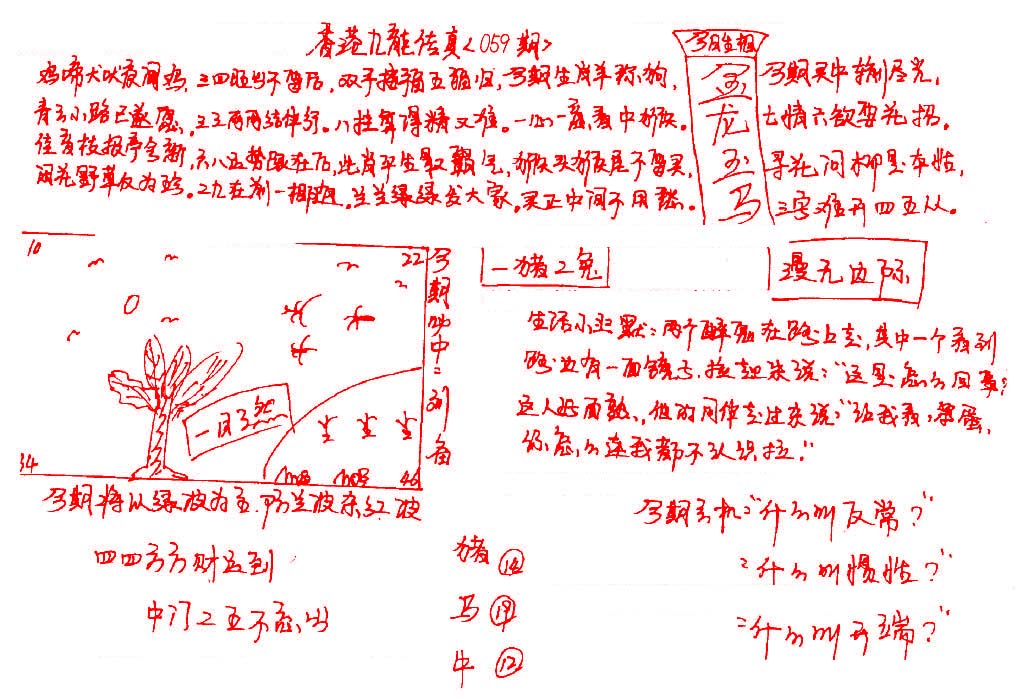 香港九龙传真<059期>
鸡啼犬吠夜闹鸡, 三四旺出不要后, 双手摇摇五 今期生肖羊称狗,
青云小路已遂愿, 三三两两结伴行。八挂算得精又准。一心一意看中猴。
佳音枝报季会新, 六八五势跟在后, 此肖平生最霸气, 猴头猴尾不要买,
闲花野草反为珍。二九在前一相迎。兰兰绿绿发大家。买正中间不用愁。
今日生相
金龙玉马
今期买中输尽光,
七情六欲要花招。
寻花问柳是本性,
三字难弄四五从。
10
22
34
46
一目了然
今期必中二到肖
一猪二兔
漫无边际
生活小幽默:两个醉鬼在路上走,其中一个看到
路边有一面镜子,捡起来说:"这里怎么回事?
这人好面熟,他的同伴走过来说:"给我看,笨蛋,
你怎么连我都不认识拉."
今期将以绿波为主.防兰波杀红波
四四方方财运到
中门二五不
猪 ⑭
马 ⑲
牛 ⑫
今期玄机:"什么叫反常?"
:"什么叫惯性?"
:"什么叫弄端?"